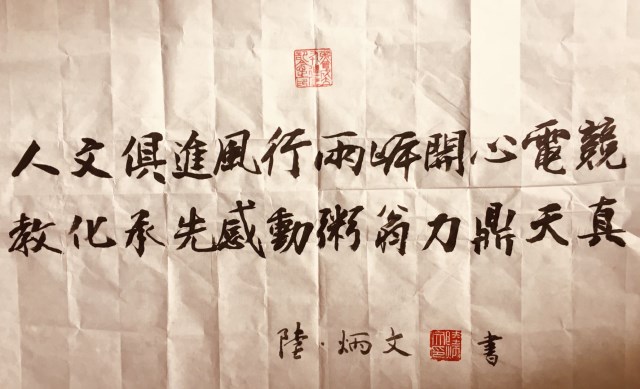 人文俱進風行兩岸開心電競
教化承先感動粥翁力鼎天真
陸·炳文 書